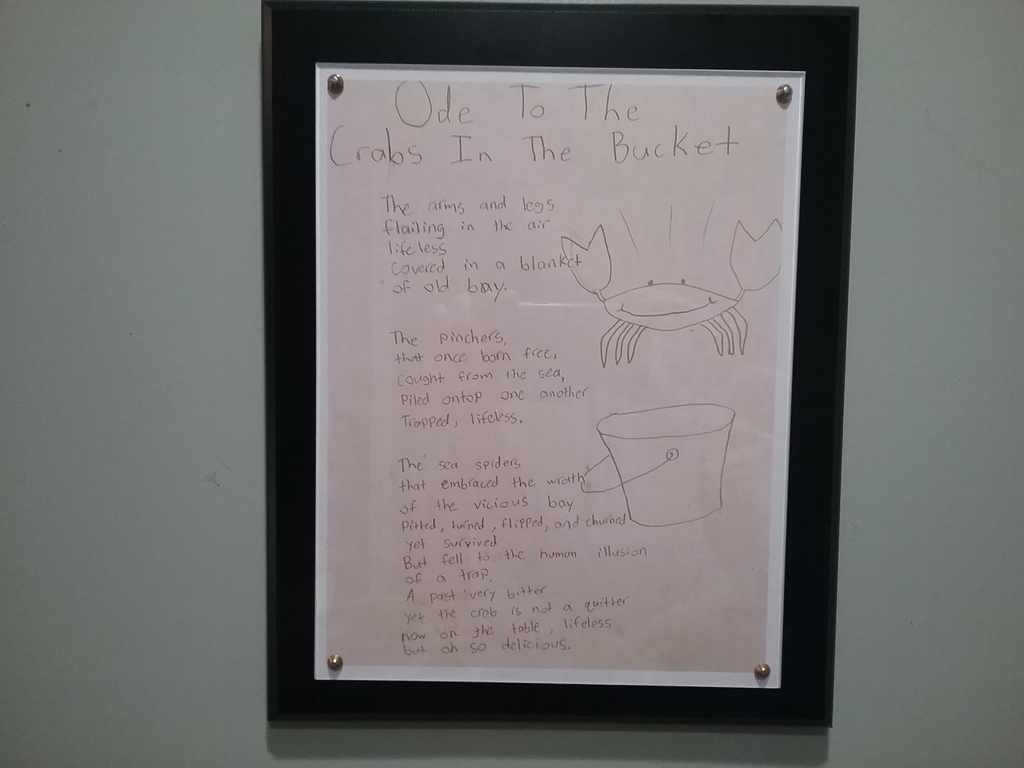 Ode To The
Crabs In The Bucket
The arms and legs
flailing in the air
lifeless
Covered in a blanket
of old bay.
The pinchers,
that once born free,
caught from the sea,
Piled ontop one another
Trapped, lifeless.
The sea spiders
that embraced the wrath
of the vicious bay
Pitted, turned, flipped, and churned
yet survived
But fell to the human illusion
of a trap.
A past very bitter
yet the crab is not a quitter
now on the table, lifeless
but oh so delicious.